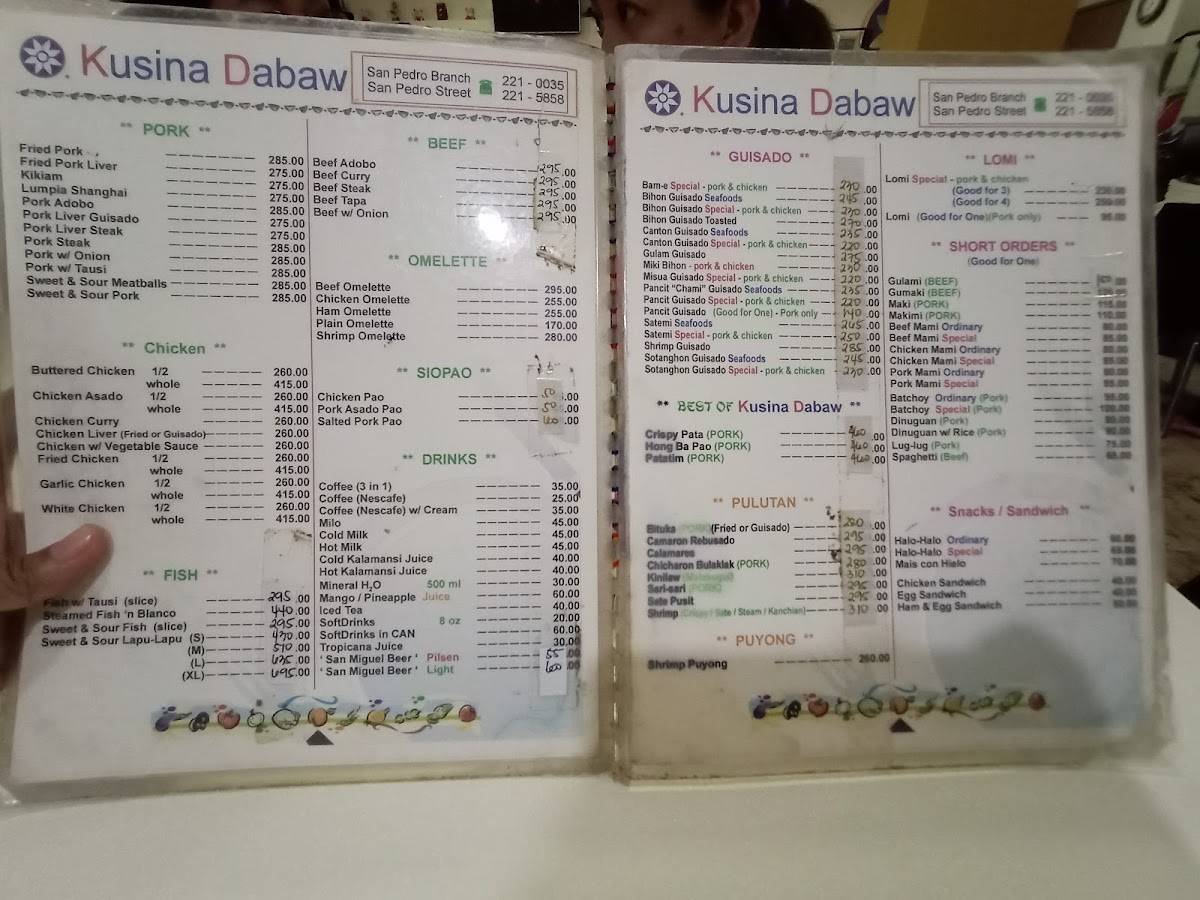 Kusina Dabaw
San Pedro Branch 221 - 0035
San Pedro Street 221 - 5858
** PORK **
Fried Pork 285.00
Fried Pork Liver 275.00
Kikiam 275.00
Lumpia Shanghai 275.00
Pork Adobo 285.00
Pork Liver Guisado 275.00
Pork Liver Steak 275.00
Pork Steak 285.00
Pork w/ Onion 285.00
Pork w/ Tausi 285.00
Sweet & Sour Meatballs 285.00
Sweet & Sour Pork 285.00
** Chicken **
Buttered Chicken 1/2 260.00
whole 415.00
Chicken Asado 1/2 260.00
whole 415.00
Chicken Curry 260.00
Chicken Liver (Fried or Guisado) 260.00
Chicken w/ Vegetable Sauce 260.00
Fried Chicken 1/2 260.00
whole 415.00
Garlic Chicken 1/2 260.00
whole 415.00
White Chicken 1/2 260.00
whole 415.00
** FISH **
Fish w/ Tausi (slice) 295.00
Steamed Fish 'n Blanco 440.00
Sweet & Sour Fish (slice) 295.00
Sweet & Sour Lapu-Lapu (S) 470.00
(M) 510.00
(L) .00
(XL) 695.00
** BEEF **
Beef Adobo 295.00
Beef Curry 295.00
Beef Steak 295.00
Beef Tapa 295.00
Beef w/ Onion 295.00
** OMELETTE **
Beef Omelette 295.00
Chicken Omelette 255.00
Ham Omelette 255.00
Plain Omelette 170.00
Shrimp Omelette 280.00
** SIOPAO **
Chicken Pao 50.00
Pork Asado Pao 50.00
Salted Pork Pao 60.00
** DRINKS **
Coffee (3 in 1) 35.00
Coffee (Nescafe) 25.00
Coffee (Nescafe) w/ Cream 35.00
Milo 45.00
Cold Milk 45.00
Hot Milk 45.00
Cold Kalamansi Juice 40.00
Hot Kalamansi Juice 40.00
Mineral H₂O 500 ml 30.00
Mango / Pineapple Juice 60.00
Iced Tea 40.00
SoftDrinks 8 oz 20.00
SoftDrinks in CAN 60.00
Tropicana Juice 30.00
' San Miguel Beer ' Pilsen 55.00
' San Miguel Beer ' Light 60.00
Kusina Dabaw
San Pedro Branch 221 - 0035
San Pedro Street 221 - 5858
** GUISADO **
Bam-e Special - pork & chicken .00
Bihon Guisado Seafoods 245.00
Bihon Guisado Special - pork & chicken .00
Bihon Guisado Toasted .00
Canton Guisado Seafoods 235.00
Canton Guisado Special - pork & chicken 220.00
Gulam Guisado 275.00
Miki Bihon - pork & chicken 230.00
Misua Guisado Special - pork & chicken 220.00
Pancit "Chami" Guisado Seafoods 235.00
Pancit Guisado Special - pork & chicken 220.00
Pancit Guisado (Good for One) - Pork only 140.00
Satemi Seafoods 265.00
Satemi Special - pork & chicken 250.00
Shrimp Guisado 285.00
Sotanghon Guisado Seafoods 245.00
Sotanghon Guisado Special - pork & chicken .00
** BEST OF Kusina Dabaw **
Crispy Pata (PORK) 460.00
Hong Ba Pao (PORK) 460.00
Patatim (PORK) 460.00
** PULUTAN **
Bituka (PORK) (Fried or Guisado) 280.00
Camaron Rebusado 295.00
Calamares 295.00
Chicharon Bulaklak (PORK) 280.00
Kinilaw 310.00
Sari-sari (PORK) 295.00
Sate Pusit 295.00
Shrimp (Crispy / Sate / Steam / Kanchian) 310.00
** PUYONG **
Shrimp Puyong 260.00
** LOMI **
Lomi Special - pork & chicken
(Good for 3)
(Good for 4)
Lomi (Good for One)(Pork only)
** SHORT ORDERS **
(Good for One)
Gulami (BEEF)
Gumaki (BEEF)
Maki (PORK)
Makimi (PORK)
Beef Mami Ordinary
Beef Mami Special
Chicken Mami Ordinary
Chicken Mami Special
Pork Mami Ordinary
Pork Mami Special
Batchoy Ordinary (Pork)
Batchoy Special (Pork)
Dinuguan (Pork)
Dinuguan w/ Rice (Pork)
Lug-lug (Pork)
Spaghetti (Beef)
** Snacks / Sandwich **
Halo-Halo Ordinary
Halo-Halo Special
Mais con Hielo
Chicken Sandwich
Egg Sandwich
Ham & Egg Sandwich